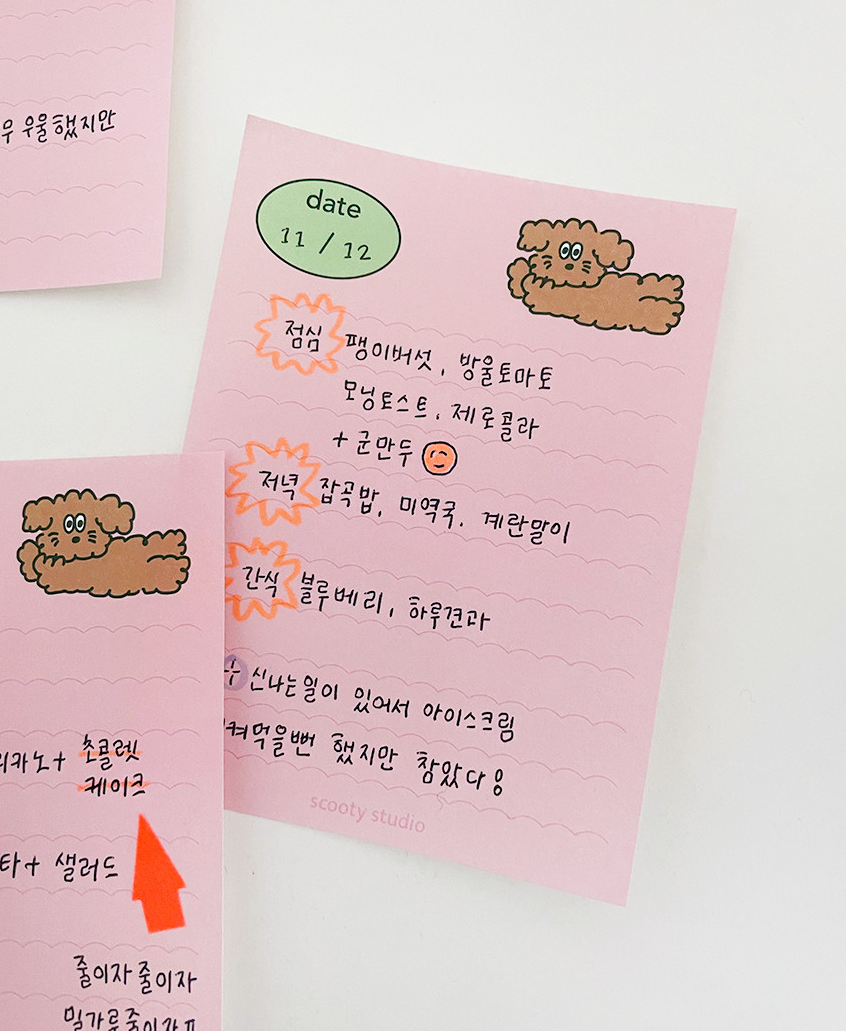 우울했지만
date
11 / 12
점심 팽이버섯, 방울토마토
모닝토스트, 제로콜라
+ 군만두
저녁 잡곡밥, 미역국, 계란말이
간식 블루베리, 하루견과
+ 신나는일이 있어서 아이스크림
켜먹을뻔 했지만 참았다!
scooty studio
리카노+ 초콜렛
케이크
타+ 샐러드
줄이자 줄이자
밀가루줄이자